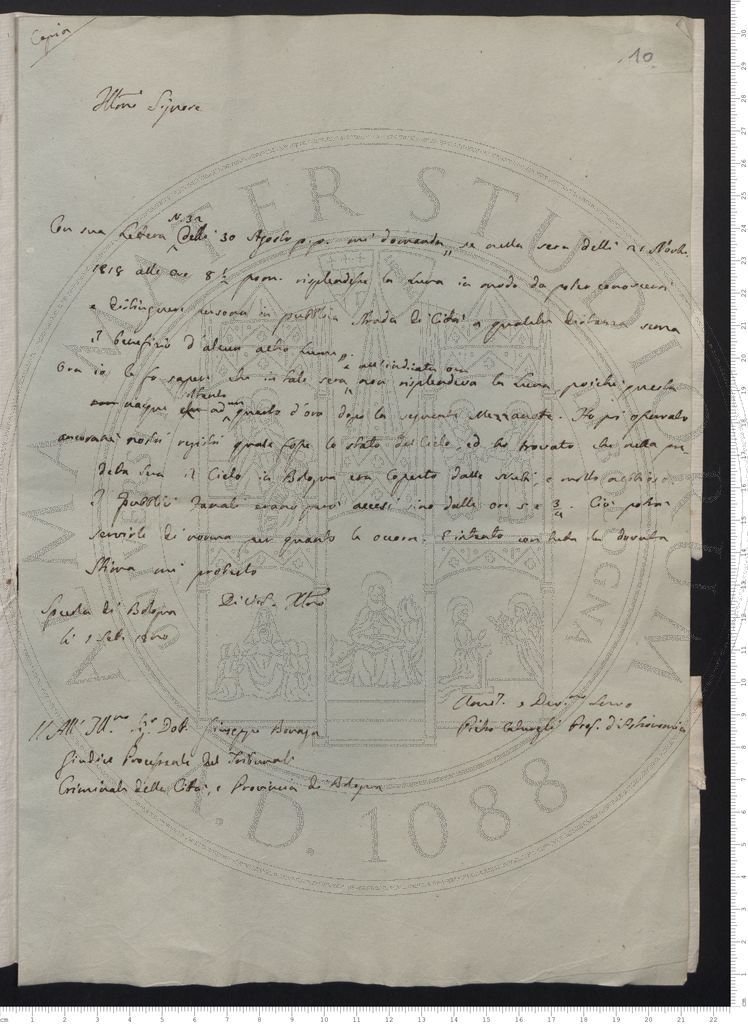 Copia
10
Illmo Signore
Con sua Lettera N. 32 delli 30 Agosto p.p. mi domanda „ se nella sera delli 21 Novb.
1818 alle ore 8 ½ pom. risplendesse la Luna in modo da poter conoscersi
e distinguersi persona in pubblica Strada di Città a qualche distanza senza
il benefizio d'alcun altro Lume „.
Ora io le fo sapere che in tale sera e all'indicata ora non risplendeva la Luna poichè questa
non nacque soltanto che ad un quarto d'ora dopo la seguente Mezzanotte. Ho poi osservato
ancora nostri registri quale fosse lo stato del Cielo, ed ho trovato che nella
detta sera il Cielo in Bologna era coperto dalle nubi, e molto
I pubblici Fanali erano però accesi sino dalle ore 5 e 3/4. Ciò potrà
servirle di norma per quanto le occorre. E intanto con tutta la dovuta
stima mi protesto
Di V.S. Illma
Specola di Bologna
li 1 Setb. 1820
Devmo Servo
Pietro Caturegli Prof. di Astronomia
All' Illmo Sig. Dott. Giuseppe
Giudice Processante del Tribunale
Criminale della Città, e Provincia di Bologna
ALMA MATER STUDIORUM
A.D. 1088